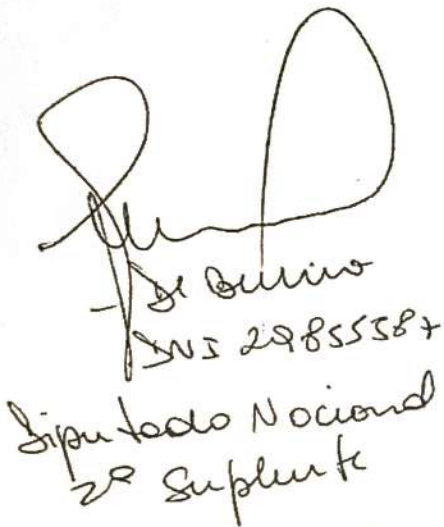 DNI 29855587
Diputado Nacional
2º Suplente